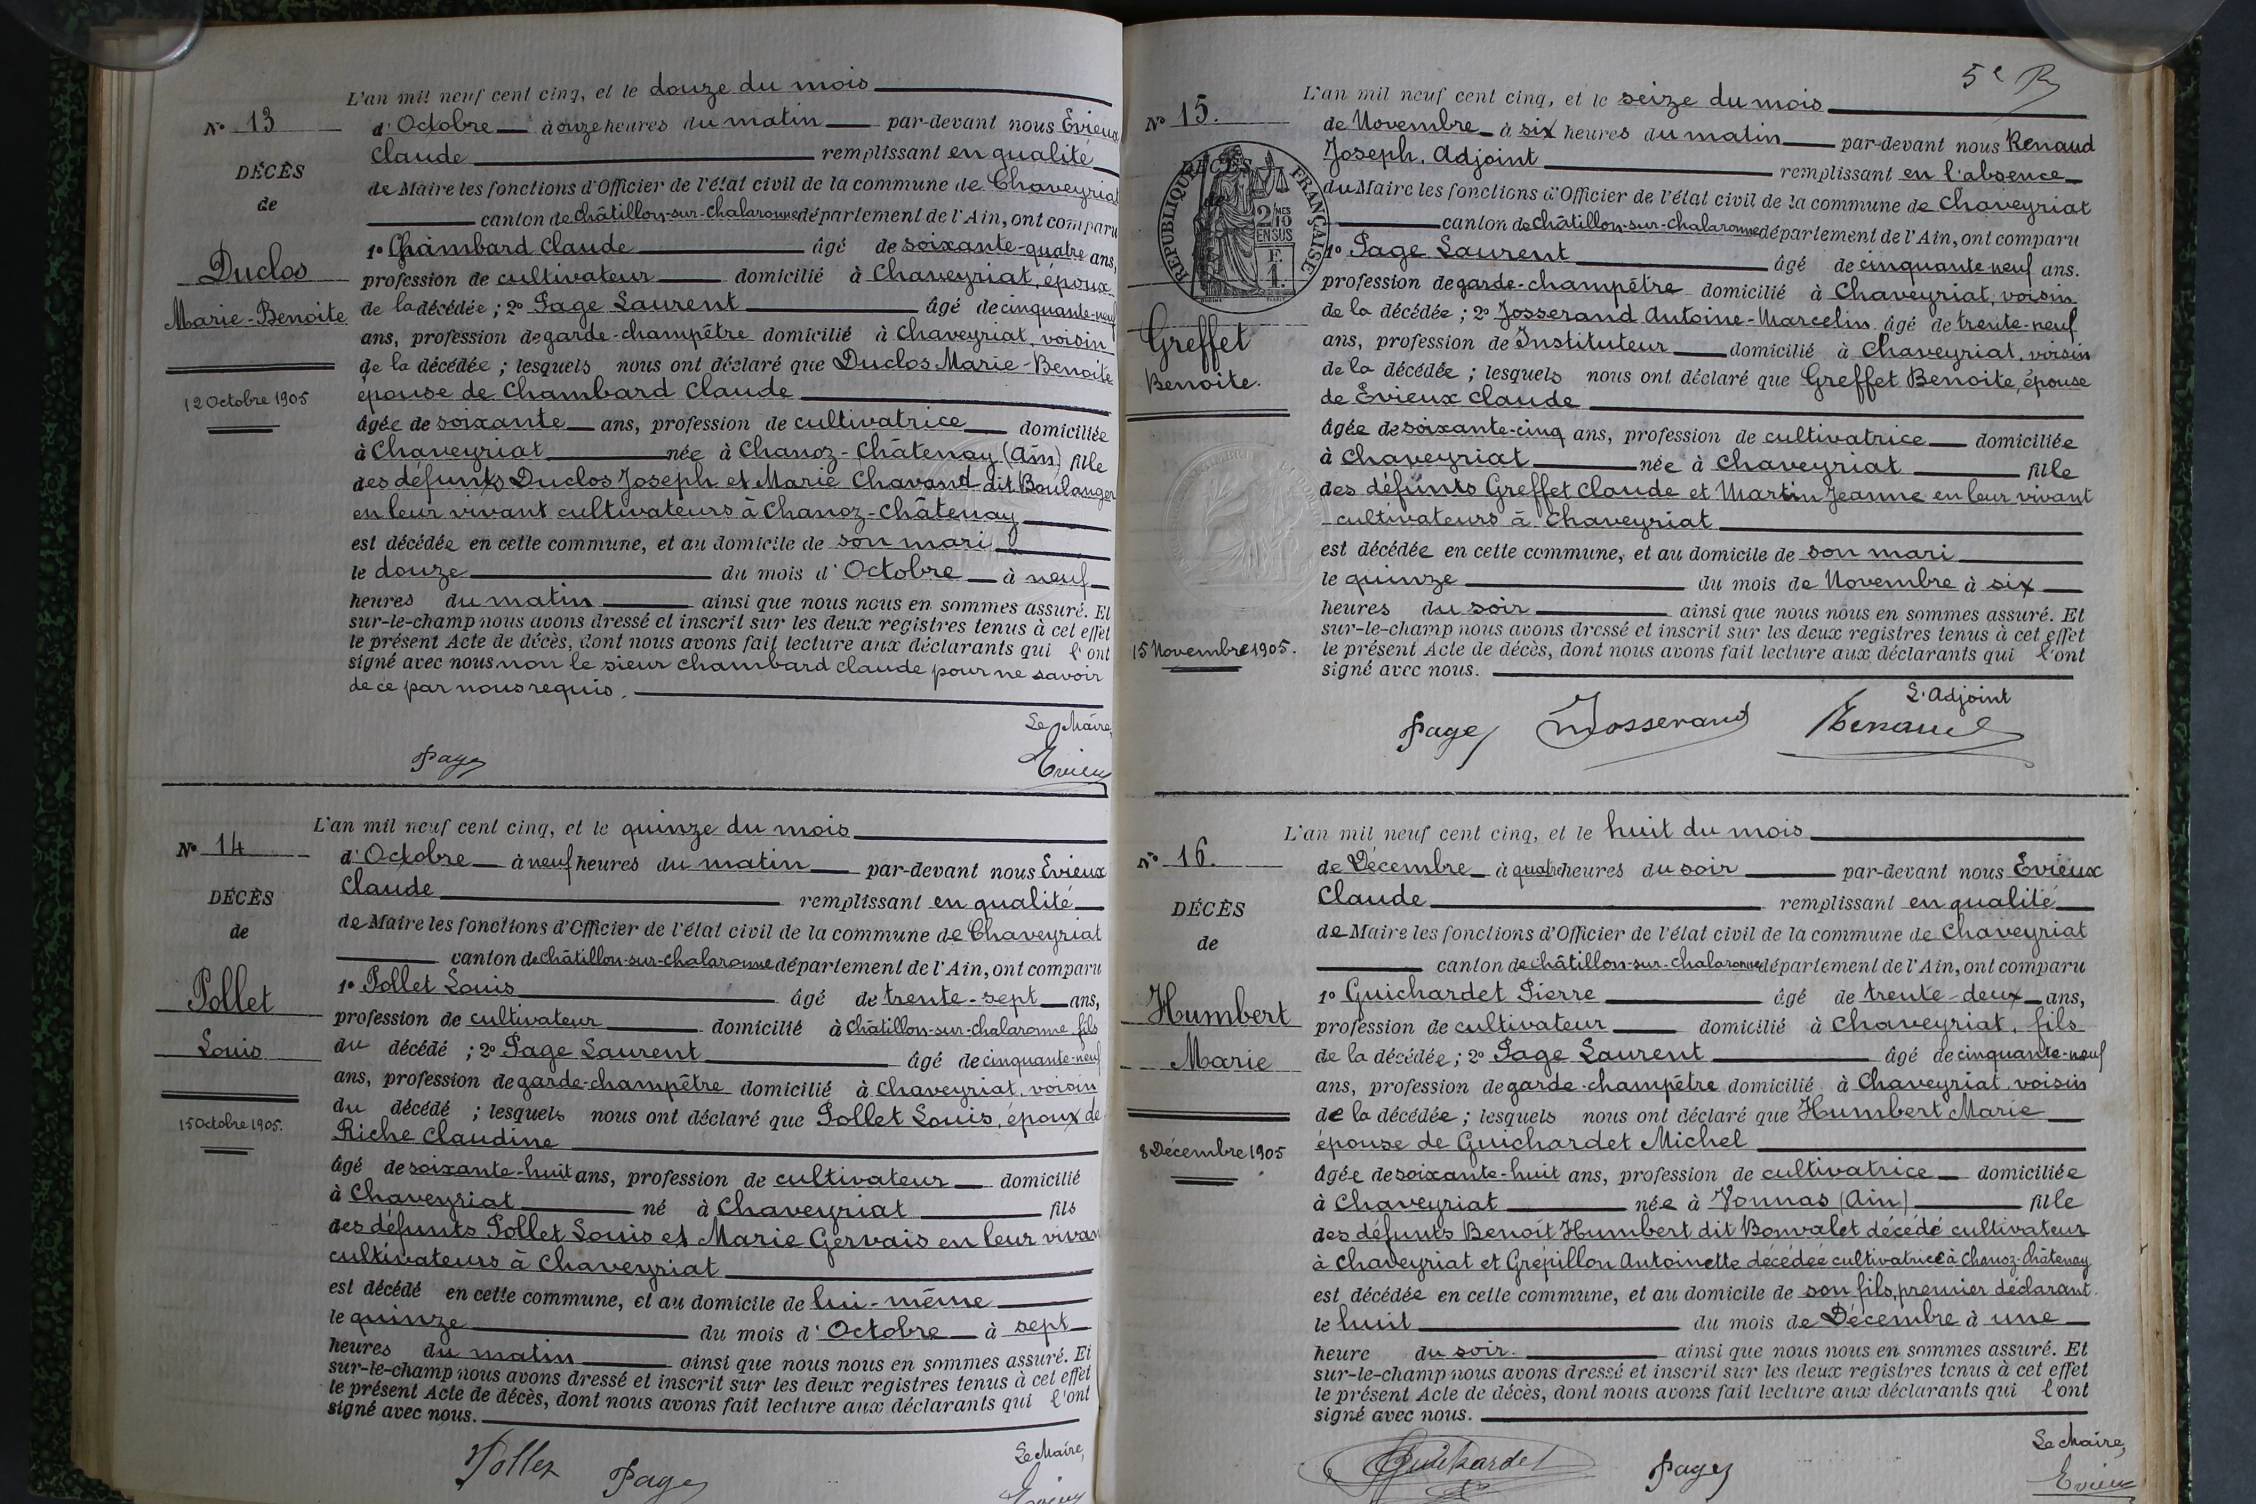 L'an mil neuf cent cinq, et le douze du mois
N° 13
d'Octobre à onze heures du matin par-devant nous Evieux
Claude remplissant en qualité
DÉCÈS
de Maire les fonctions d'Officier de l'état civil de la commune de Chaveyriat
de
canton de Châtillon-sur-Chalaronne département de l'Ain, ont comparu
1° Chambard Claude âgé de soixante-quatre ans,
Duclos
profession de cultivateur domicilié à Chaveyriat, époux
Marie-Benoite
de la décédée ; 2° Page Laurent âgé de cinquante-neuf
ans, profession de garde-champêtre domicilié à Chaveyriat, voisin
de la décédée ; lesquels nous ont déclaré que Duclos Marie-Benoite
12 Octobre 1905
épouse de Chambard Claude
âgée de soixante ans, profession de cultivatrice domiciliée
à Chaveyriat née à Chanoz-Châtenay (Ain) fille
des défunts Duclos Joseph et Marie Chavand dit Boulanger
en leur vivant cultivateurs à Chanoz-Châtenay
est décédée en cette commune, et au domicile de son mari
le douze du mois d'Octobre à neuf
heures du matin ainsi que nous nous en sommes assuré. Et
sur-le-champ nous avons dressé et inscrit sur les deux registres tenus à cet effet
le présent Acte de décès, dont nous avons fait lecture aux déclarants qui l'ont
signé avec nous non le sieur Chambard Claude pour ne savoir
de ce par nous requis.
Le Maire,
Page Evieux
L'an mil neuf cent cinq, et le quinze du mois
N° 14
d'Octobre à neuf heures du matin par-devant nous Evieux
Claude remplissant en qualité
DÉCÈS
de Maire les fonctions d'Officier de l'état civil de la commune de Chaveyriat
de
canton de Châtillon-sur-Chalaronne département de l'Ain, ont comparu
1° Pollet Louis âgé de trente-sept ans,
Pollet
profession de cultivateur domicilié à Châtillon-sur-Chalaronne fils
Louis
du décédé ; 2° Page Laurent âgé de cinquante-neuf
ans, profession de garde-champêtre domicilié à Chaveyriat, voisin
du décédé ; lesquels nous ont déclaré que Pollet Louis, époux de
15 Octobre 1905.
Riche Claudine
âgé de soixante-huit ans, profession de cultivateur domicilié
à Chaveyriat né à Chaveyriat fils
des défunts Pollet Louis et Marie Gervais en leur vivant
cultivateurs à Chaveyriat
est décédé en cette commune, et au domicile de lui-même
le quinze du mois d'Octobre à sept
heures du matin ainsi que nous nous en sommes assuré. Et
sur-le-champ nous avons dressé et inscrit sur les deux registres tenus à cet effet
le présent Acte de décès, dont nous avons fait lecture aux déclarants qui l'ont
signé avec nous.
Le Maire,
Pollet Page Evieux
5e
L'an mil neuf cent cinq, et le seize du mois
N° 15.
de Novembre à six heures du matin par-devant nous Renaud
Joseph, Adjoint remplissant en l'absence
DÉCÈS
RÉPUBLIQUE FRANÇAISE
2/10 MES EN SUS
F. 1.
du Maire les fonctions d'Officier de l'état civil de la commune de Chaveyriat
de
canton de Châtillon-sur-Chalaronne département de l'Ain, ont comparu
1° Page Laurent âgé de cinquante neuf ans.
profession de garde-champêtre domicilié à Chaveyriat, voisin
Greffet
de la décédée ; 2° Josserand Antoine-Marcelin âgé de trente-neuf
ans, profession de Instituteur domicilié à Chaveyriat, voisin
Benoite.
de la décédée ; lesquels nous ont déclaré que Greffet Benoite, épouse
de Evieux Claude
âgée de soixante-cinq ans, profession de cultivatrice domiciliée
à Chaveyriat née à Chaveyriat fille
des défunts Greffet Claude et Martin Jeanne en leur vivant
cultivateurs à Chaveyriat
est décédée en cette commune, et au domicile de son mari
le quinze du mois de Novembre à six
heures du soir ainsi que nous nous en sommes assuré. Et
sur-le-champ nous avons dressé et inscrit sur les deux registres tenus à cet effet
15 Novembre 1905.
le présent Acte de décès, dont nous avons fait lecture aux déclarants qui l'ont
signé avec nous.
L'Adjoint
Page Josserand Renaud
L'an mil neuf cent cinq, et le huit du mois
N° 16.
de Décembre à quatre heures du soir par-devant nous Evieux
Claude remplissant en qualité
DÉCÈS
de Maire les fonctions d'Officier de l'état civil de la commune de Chaveyriat
de
canton de Châtillon-sur-Chalaronne département de l'Ain, ont comparu
1° Guichardet Pierre âgé de trente-deux ans,
Humbert
profession de cultivateur domicilié à Chaveyriat, fils
Marie
de la décédée ; 2° Page Laurent âgé de cinquante-neuf
ans, profession de garde-champêtre domicilié à Chaveyriat, voisin
de la décédée ; lesquels nous ont déclaré que Humbert Marie
8 Décembre 1905
épouse de Guichardet Michel
âgée de soixante-huit ans, profession de cultivatrice domiciliée
à Chaveyriat née à Vonnas (Ain) fille
des défunts Benoit Humbert dit Bonvalet décédé cultivateur
à Chaveyriat et Grépillon Antoinette décédée cultivatrice à Chanoz-Châtenay
est décédée en cette commune, et au domicile de son fils, premier déclarant.
le huit du mois de Décembre à une
heure du soir. ainsi que nous nous en sommes assuré. Et
sur-le-champ nous avons dressé et inscrit sur les deux registres tenus à cet effet
le présent Acte de décès, dont nous avons fait lecture aux déclarants qui l'ont
signé avec nous.
Le Maire,
Guichardet Page Evieux